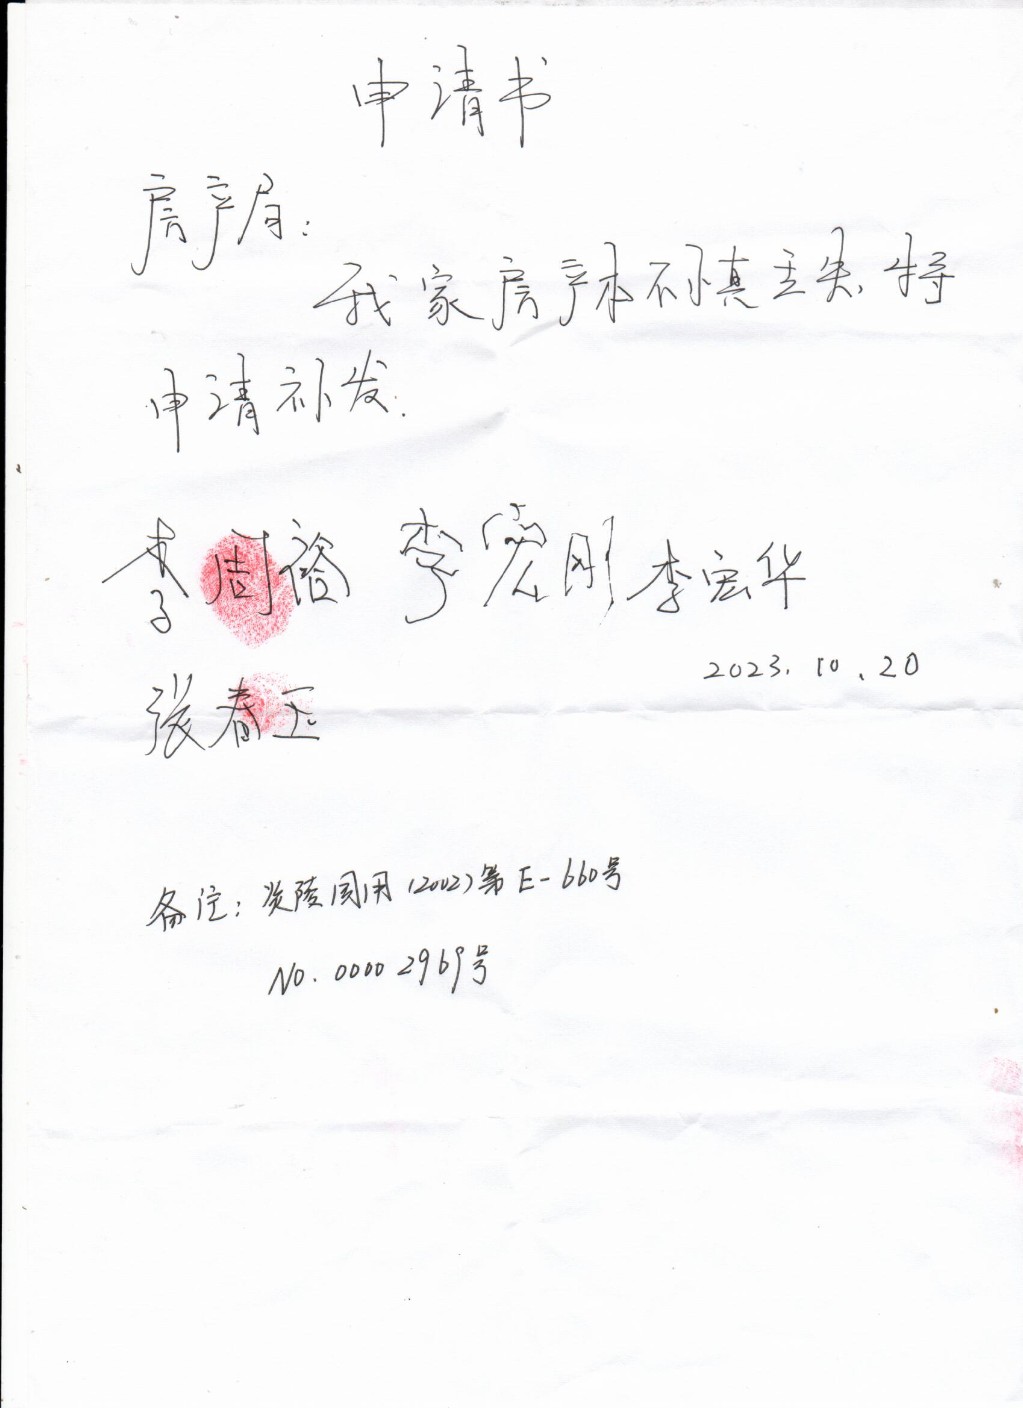 申请书
房产局:
我家房产本不慎丢失.特
申请补发.
李周裕 李宏刚 李宏华
2023.10.20
张春玉
备注:炎陵国用(2002)第E-660号
NO.00002969号